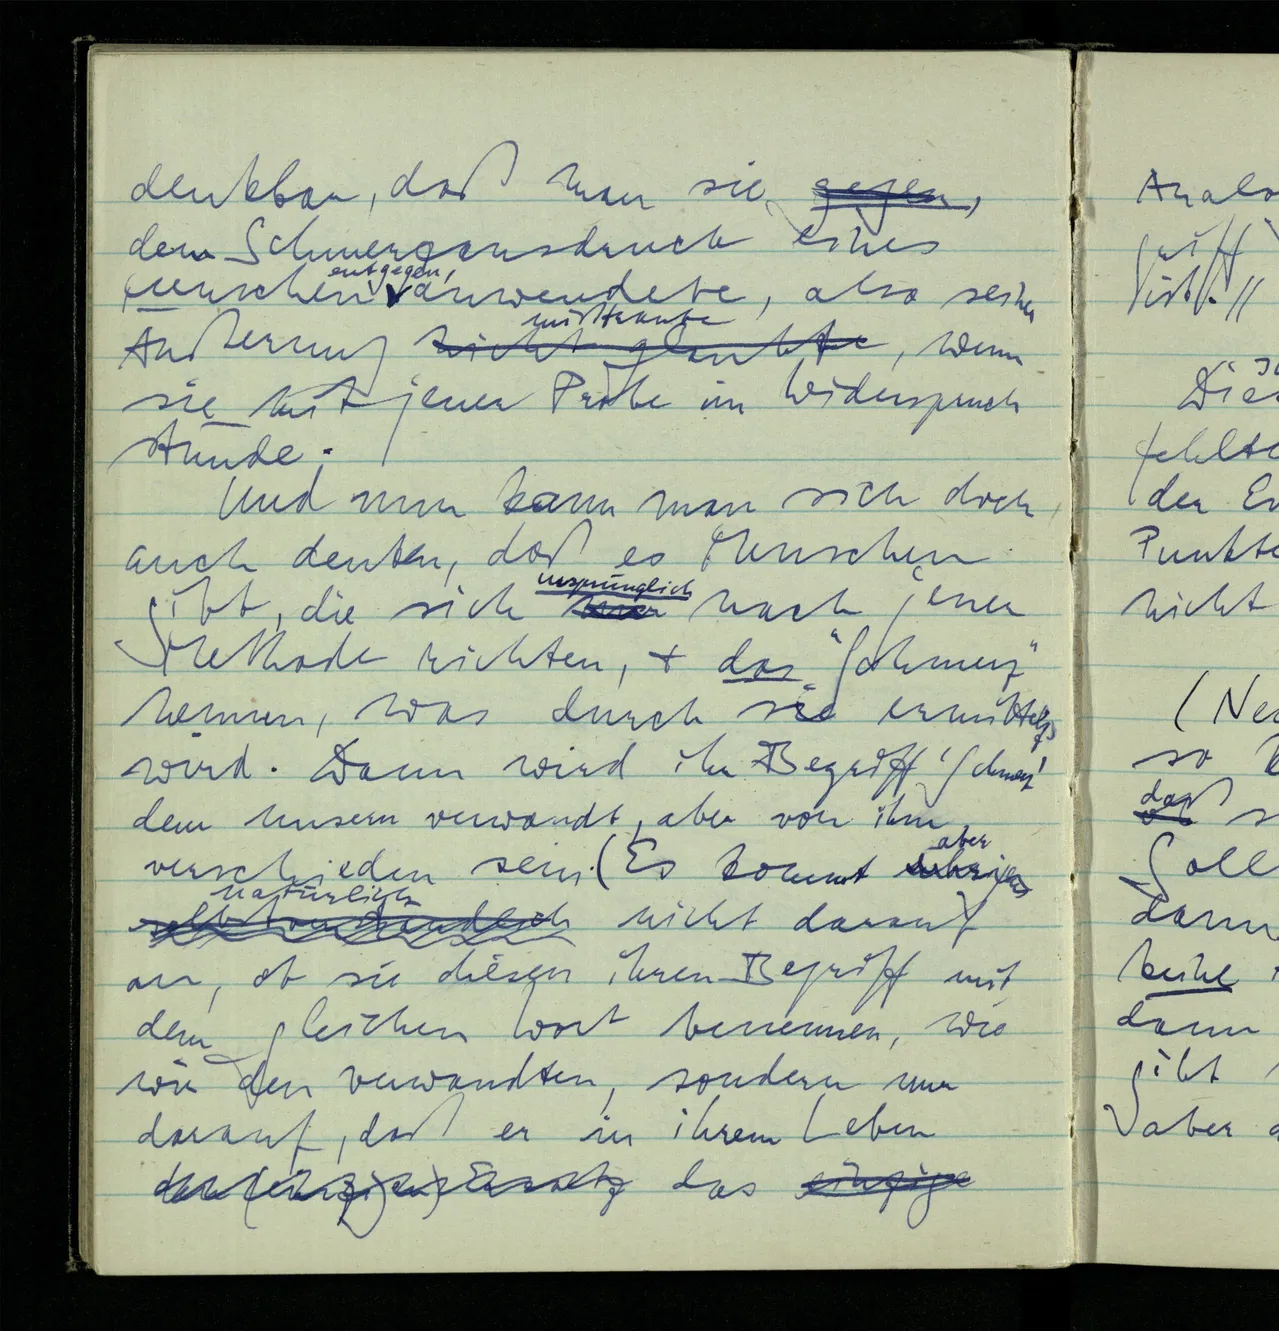 denkbar, daß man sie gegen,
dem Schmerzausdruck eines
Menschen entgegen, anwendete, also seiner
Äußerung mißtraute nicht glaubte, wenn
sie mit jener Probe im Widerspruch
stünde.
Und nun kann man sich doch
auch denken, daß es Menschen
gibt, die sich ursprünglich nach jener
Methode richten, + das "Schmerz"
nennen, was durch sie ermittelt
wird. Dann wird ihr Begriff 'Schmerz'
dem unsern verwandt, aber von ihm
verschieden sein. (Es kommt aber übrigens
natürlich selbstverständlich nicht darauf
an, ob sie diesen ihren Begriff mit
dem gleichen Wort benennen, wie
wir den verwandten, sondern nur
darauf, daß er in ihrem Leben
den (einzigen) Ersatz das einzige
Analo
griff
ist. //
"Dies
fehlte
der Er
Punkte
nicht
(Ne
so
daß s
Soll
dann
keine
dann
gibt
aber